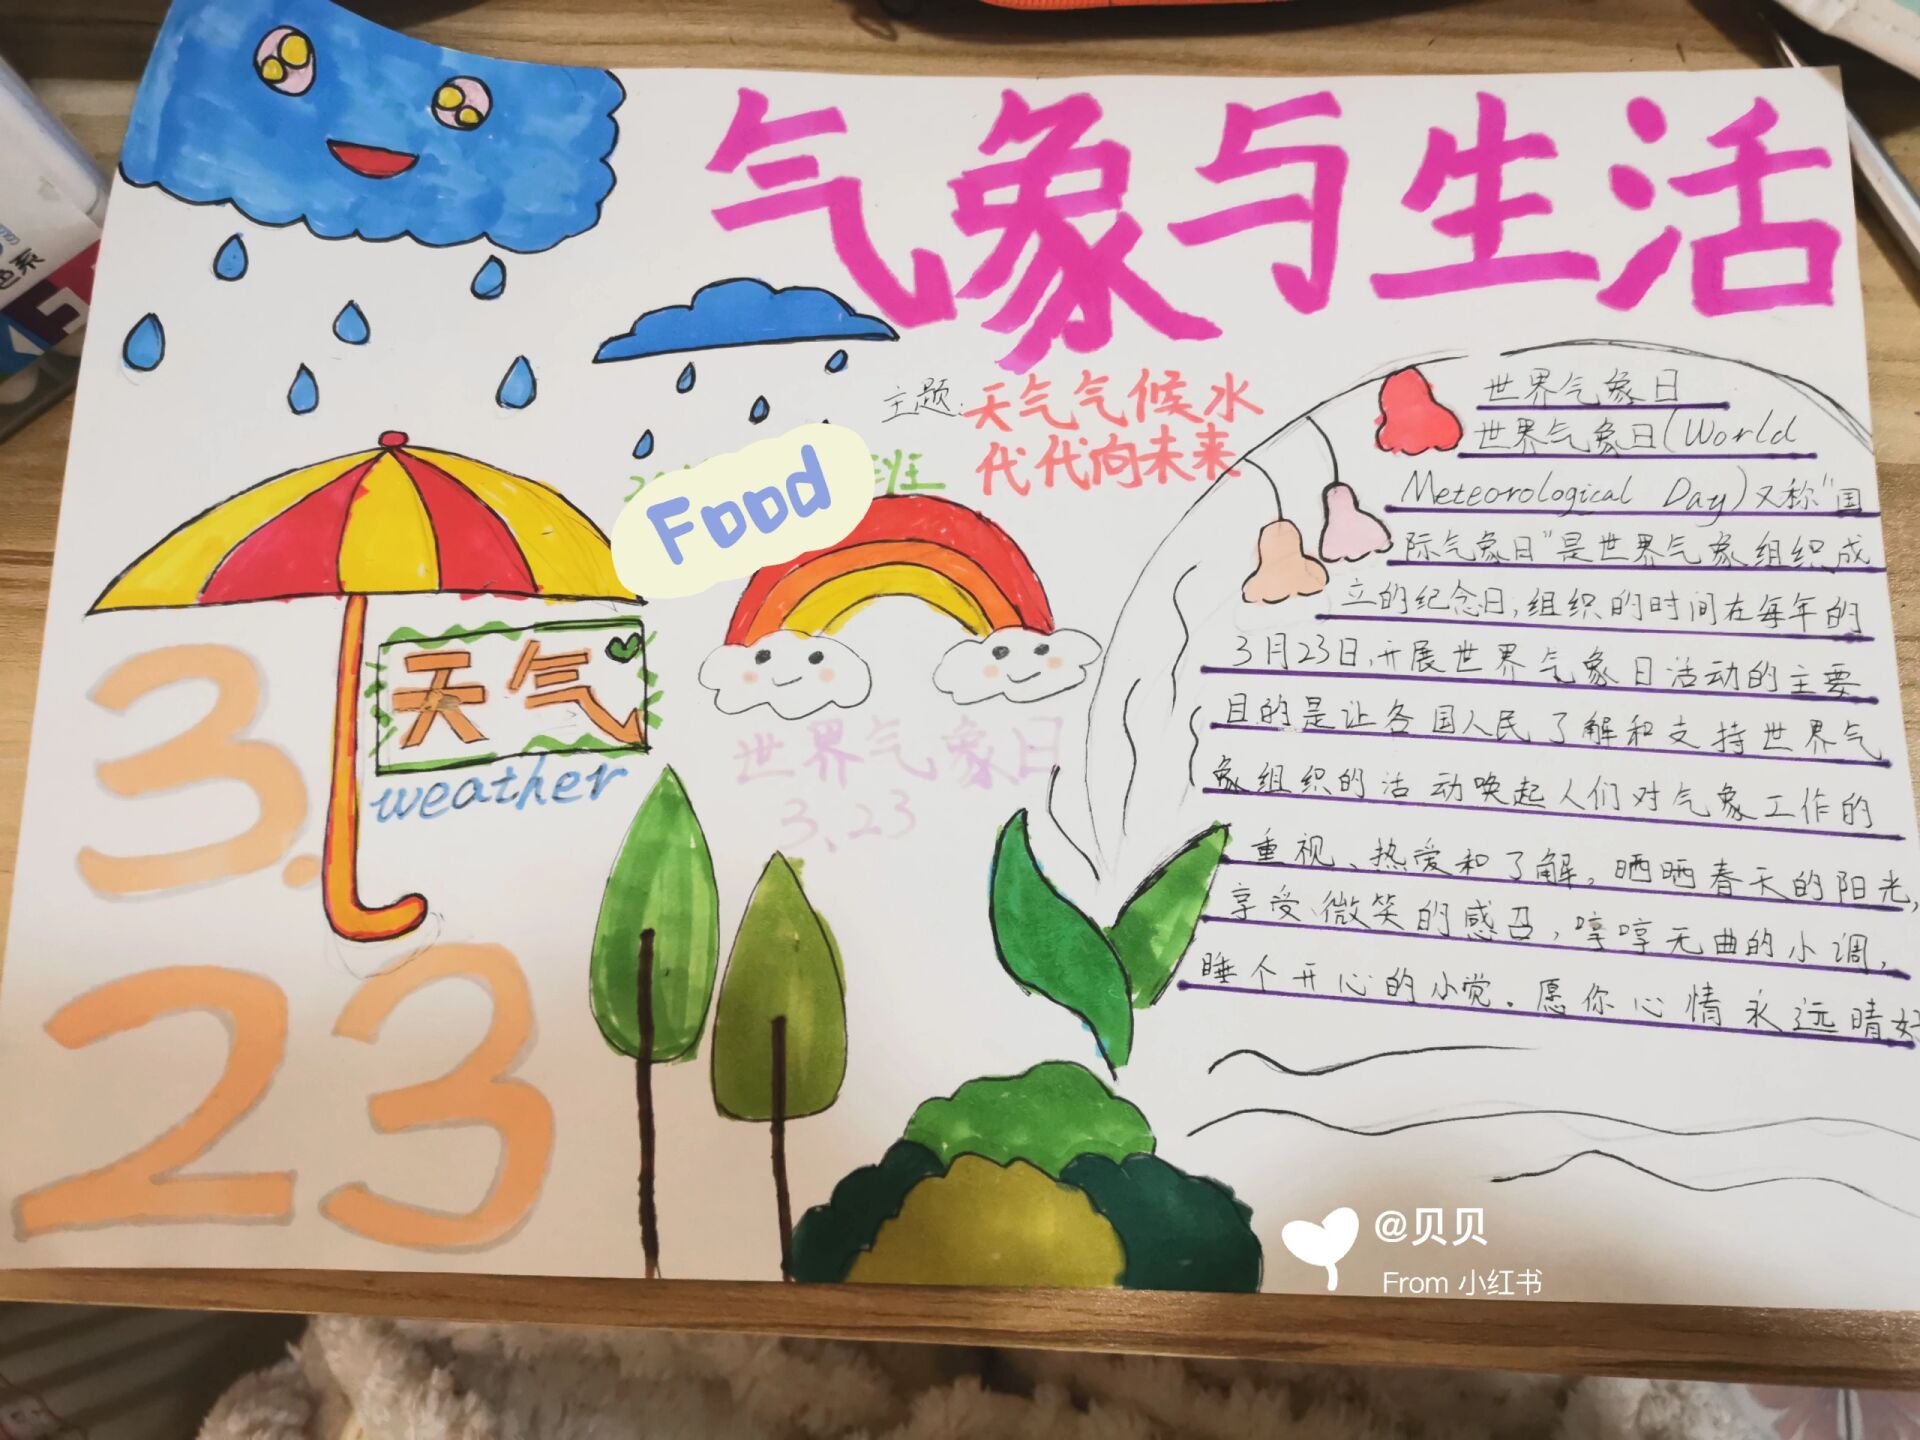 气象与生活
主题:天气气候水
代代向未来
班
Food
世界气象日
世界气象日(World
Meteorological Day)又称“国
际气象日”是世界气象组织成
立的纪念日,组织的时间在每年的
3月23日,开展世界气象日活动的主要
目的是让各国人民了解和支持世界气
象组织的活动唤起人们对气象工作的
重视、热爱和了解。晒晒春天的阳光,
享受微笑的感召,哼哼无曲的小调,
睡个开心的小觉。愿你心情永远晴好
天气
weather
世界气象日
3.23
3.
23
@贝贝
From 小红书
色系